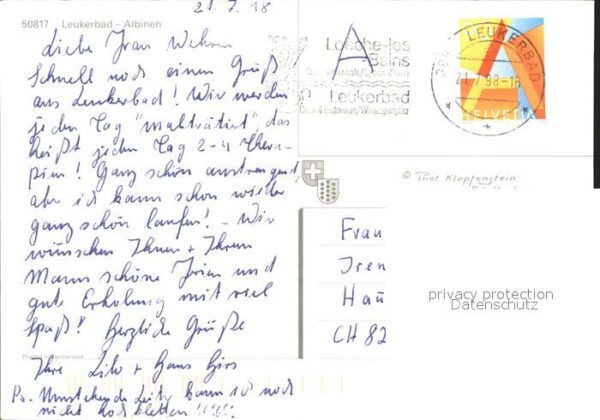 21.7.98
50817 Leukerbad - Albinen
Liebe Frau Wehren
Schnell noch einen Gruß
aus Leukerbad! Wir werden
jeden Tag "malträtiert" das
heißt jeden Tag 2-4 Thera-
pien! Ganz schön anstrengend,
aber ich kann schon wieder
ganz schön laufen! - Wir
wünschen Ihnen + Ihrem
Mann schöne Ferien und
gute Erholung mit viel
Spaß! Herzliche Grüße
Ihre Lilo + Hans
Ps. kann ich noch
nicht hochklettern !!!!!
A
Loèche-les
Bains
Leukerbad
LEUKERBAD
21.7.98-18
A
HELVETIA
© Klopfenstein
Frau
Iren
CH 82
privacy protection
Datenschutz